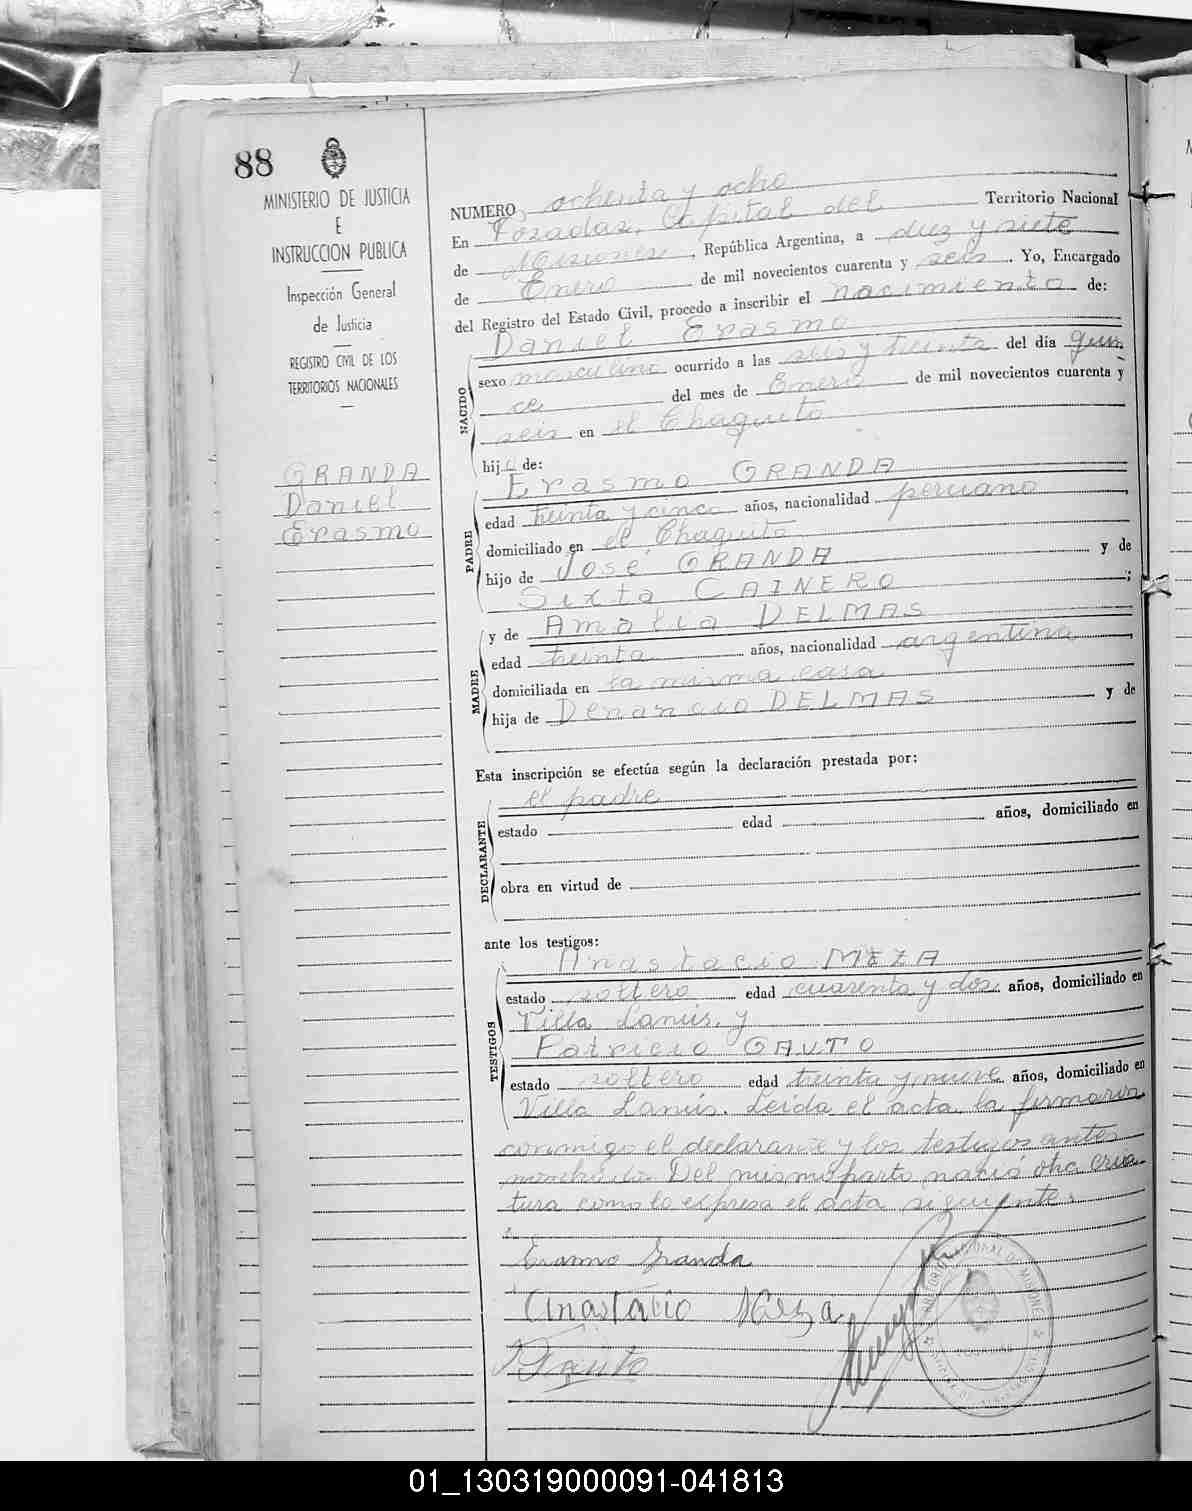 88
MINISTERIO DE JUSTICIA
E
INSTRUCCION PUBLICA
Inspección General
de Justicia
REGISTRO CIVIL DE LOS
TERRITORIOS NACIONALES
GRANDA
Daniel
Erasmo
NUMERO ochenta y ocho
En Posadas, Capital del Territorio Nacional
de Misiones, República Argentina, a diez y siete
de Enero de mil novecientos cuarenta y seis. Yo, Encargado
del Registro del Estado Civil, procedo a inscribir el nacimiento de:
NACIDO
Daniel Erasmo
sexo masculino ocurrido a las seis y treinta del día quin
ce del mes de Enero de mil novecientos cuarenta y
seis en el Chaquito
hijo de:
PADRE
Erasmo GRANDA
edad treinta y cinco años, nacionalidad peruano,
domiciliado en el Chaquito
hijo de José GRANDA y de
Sixta CAINERO;
MADRE
y de Amalia DELMAS
edad treinta años, nacionalidad argentina,
domiciliada en la misma casa
hija de Venancio DELMAS y de
Esta inscripción se efectúa según la declaración prestada por:
DECLARANTE
el padre
estado edad años, domiciliado en
obra en virtud de
ante los testigos:
TESTIGOS
Anastacio MEZA
estado soltero edad cuarenta y dos años, domiciliado en
Villa Lanús, y
Patricio GAUTO
estado soltero edad treinta y nueve años, domiciliado en
Villa Lanús. Leida el acta, la firmaron
conmigo el declarante y los testigos antes
Del mismo parto nació otra cria-
tura como lo expresa el acta siguiente.
Erasmo Granda
Anastacio Meza
01_130319000091-041813